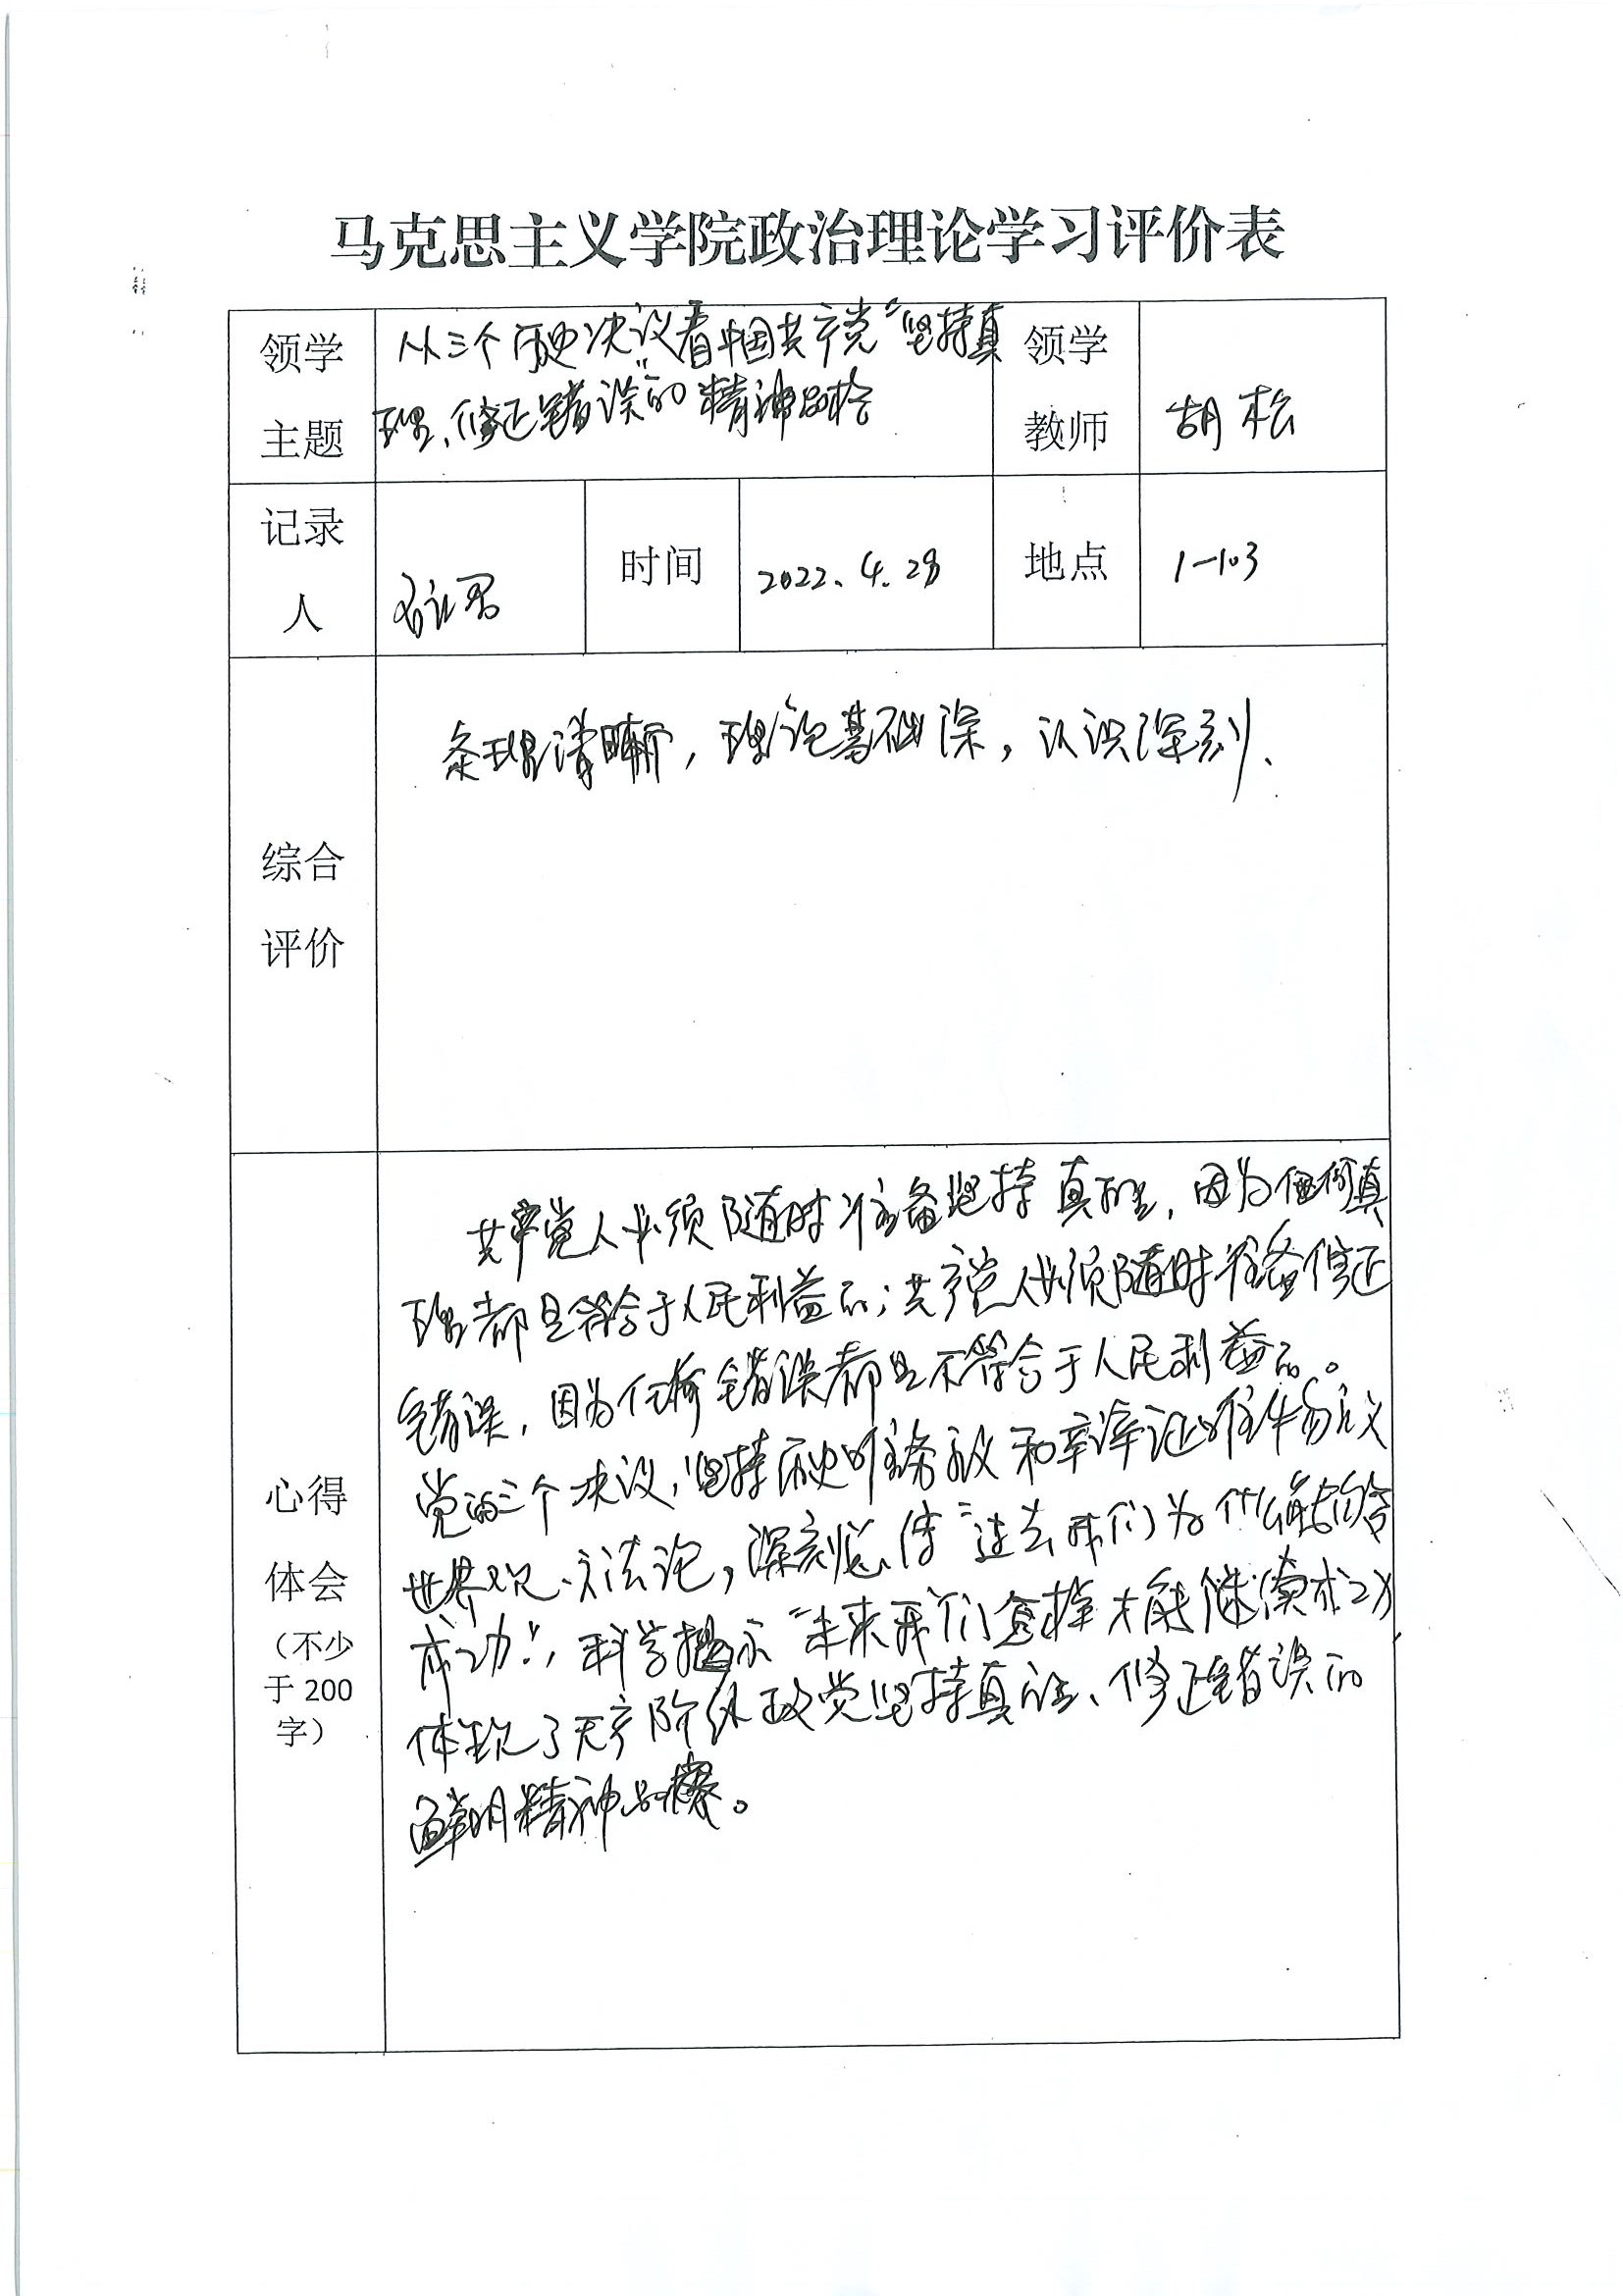 马克思主义学院政治理论学习评价表
领学
主题
从三个历史决议看中国共产党“坚持真
理、修正错误”的精神品格
领学
教师
胡松
记录
人
时间
2022.4.28
地点
1-103
综合
评价
条理清晰，理论基础深，认识深刻、
心得
体会
（不少
于200
字）
共产党人必须随时准备坚持真理，因为任何真
理都是符合于人民利益的；共产党人必须随时准备修正
错误，因为任何错误都是不符合于人民利益的。
党的三个决议，坚持历史唯物主义和辩证唯物主义
世界观、方法论，深刻总结“过去我们为什么能够
成功”，科学揭示“未来我们怎样才能继续成功”
体现了无产阶级政党坚持真理、修正错误的
鲜明精神品格。